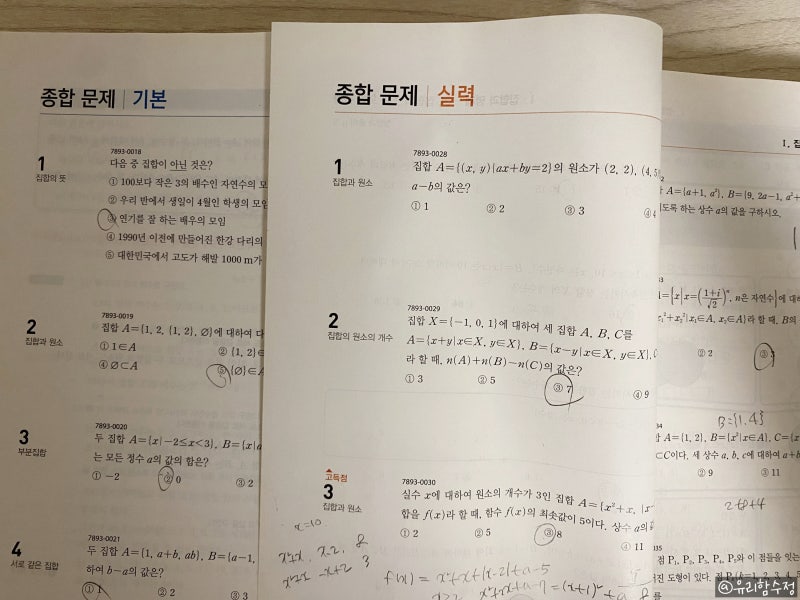 종합 문제 | 기본
7893-0018
1
다음 중 집합이 아닌 것은?
집합의 뜻
① 100보다 작은 3의 배수인 자연수의 모
② 우리 반에서 생일이 4월인 학생의 모임
③ 연기를 잘 하는 배우의 모임
④ 1990년 이전에 만들어진 한강 다리의
⑤ 대한민국에서 고도가 해발 1000 m가
7893-0019
2
집합 A={1, 2, {1, 2}, ∅}에 대하여 다
집합과 원소
① 1∈A
② {1, 2}∈
④ ∅⊂A
⑤ {∅}∈A
7893-0020
3
두 집합 A={x|−2≤x<3}, B={x|a
부분집합
는 모든 정수 a의 값의 합은?
① −2
② 0
③ 2
7893-0021
4
두 집합 A={1, a+b, ab}, B={a−1,
서로 같은 집합
하여 b−a의 값은?
① 1
② 2
③ 3
종합 문제 | 실력
7893-0028
1
집합 A={(x, y)|ax+by=2}의 원소가 (2, 2), (4, 5
집합과 원소
a−b의 값은?
① 1
② 2
③ 3
④ 4
7893-0029
2
집합 X={−1, 0, 1}에 대하여 세 집합 A, B, C를
집합의 원소의 개수
A={x+y|x∈X, y∈X}, B={x−y|x∈X, y∈X},
라 할 때, n(A)+n(B)−n(C)의 값은?
① 3
② 5
③ 7
④ 9
고득점
7893-0030
3
실수 x에 대하여 원소의 개수가 3인 집합 A={x²+x, |x−
집합과 원소
합을 f(x)라 할 때, 함수 f(x)의 최솟값이 5이다. 상수 a의
① 2
② 5
③ 8
④ 11
x=10
f(x) = x²+x+|x-2|+a-5
1. 집
A={a+1, a²}, B={9, 2a−1, a²+
도록 하는 상수 a의 값을 구하시오.
n은 자연수}에 대하
x₁∈A, x₂∈A}라 할 때, B의
② 2
③
B={1,4}
A={1, 2}, B={x²|x∈A}, C={x
⊂C이다. 세 상수 a, b, c에 대하여 a+b
② 9
③ 11
2+8+4
점 P₁, P₂, P₃, P₄, P₅와 이 점들을 잇는
@유리함수정